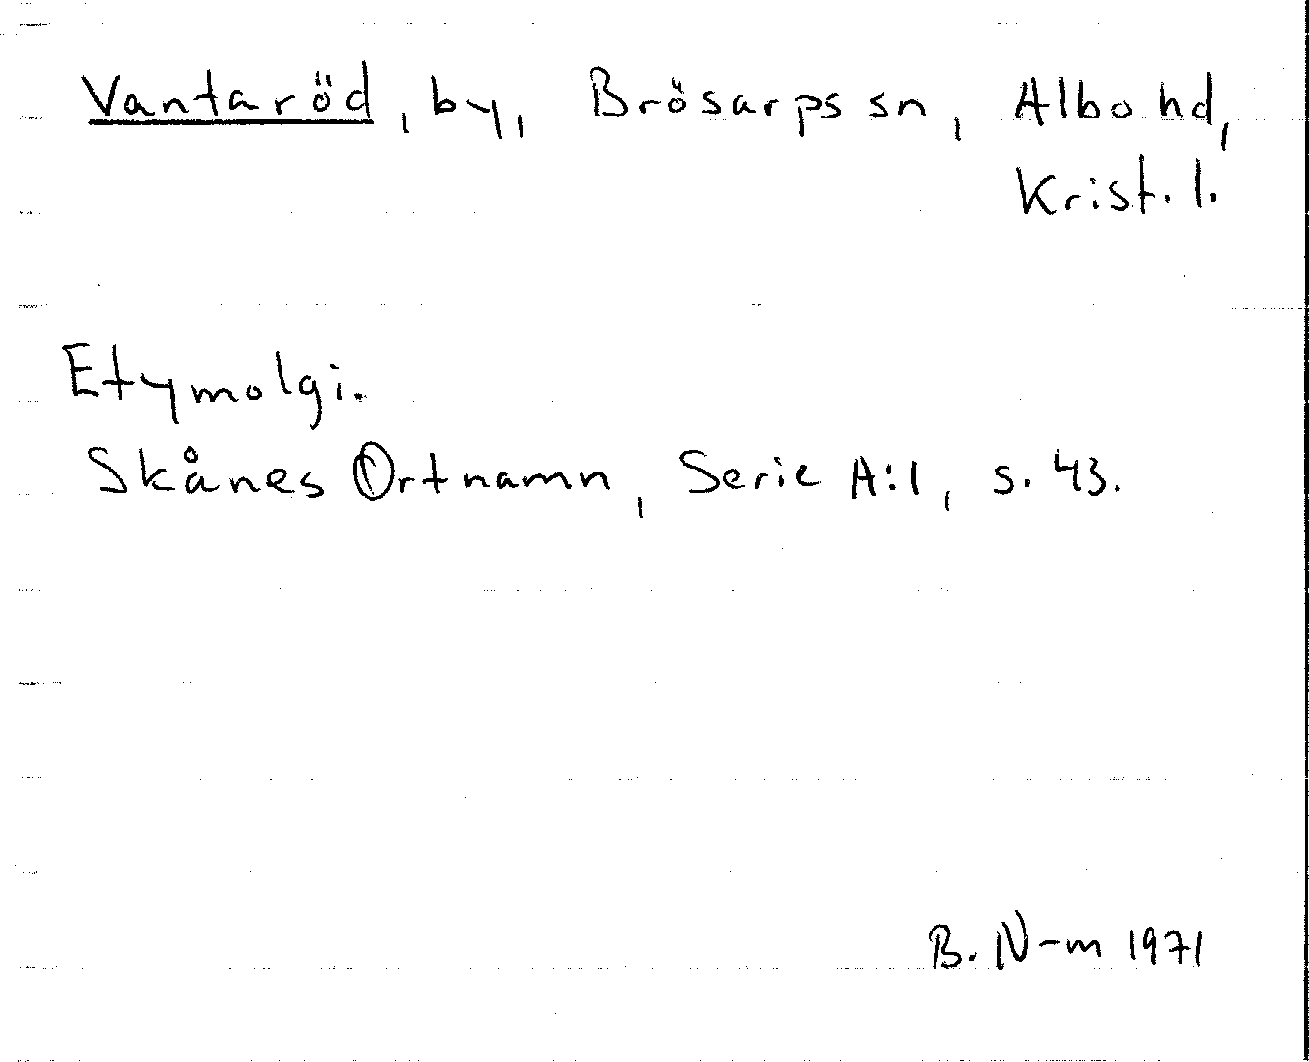 Vantaröd, by, Brösarps sn, Albo hd,
Krist. l.
Etymolgi.
Skånes Ortnamn, Serie A:1, s. 43.
B. N-m 1971